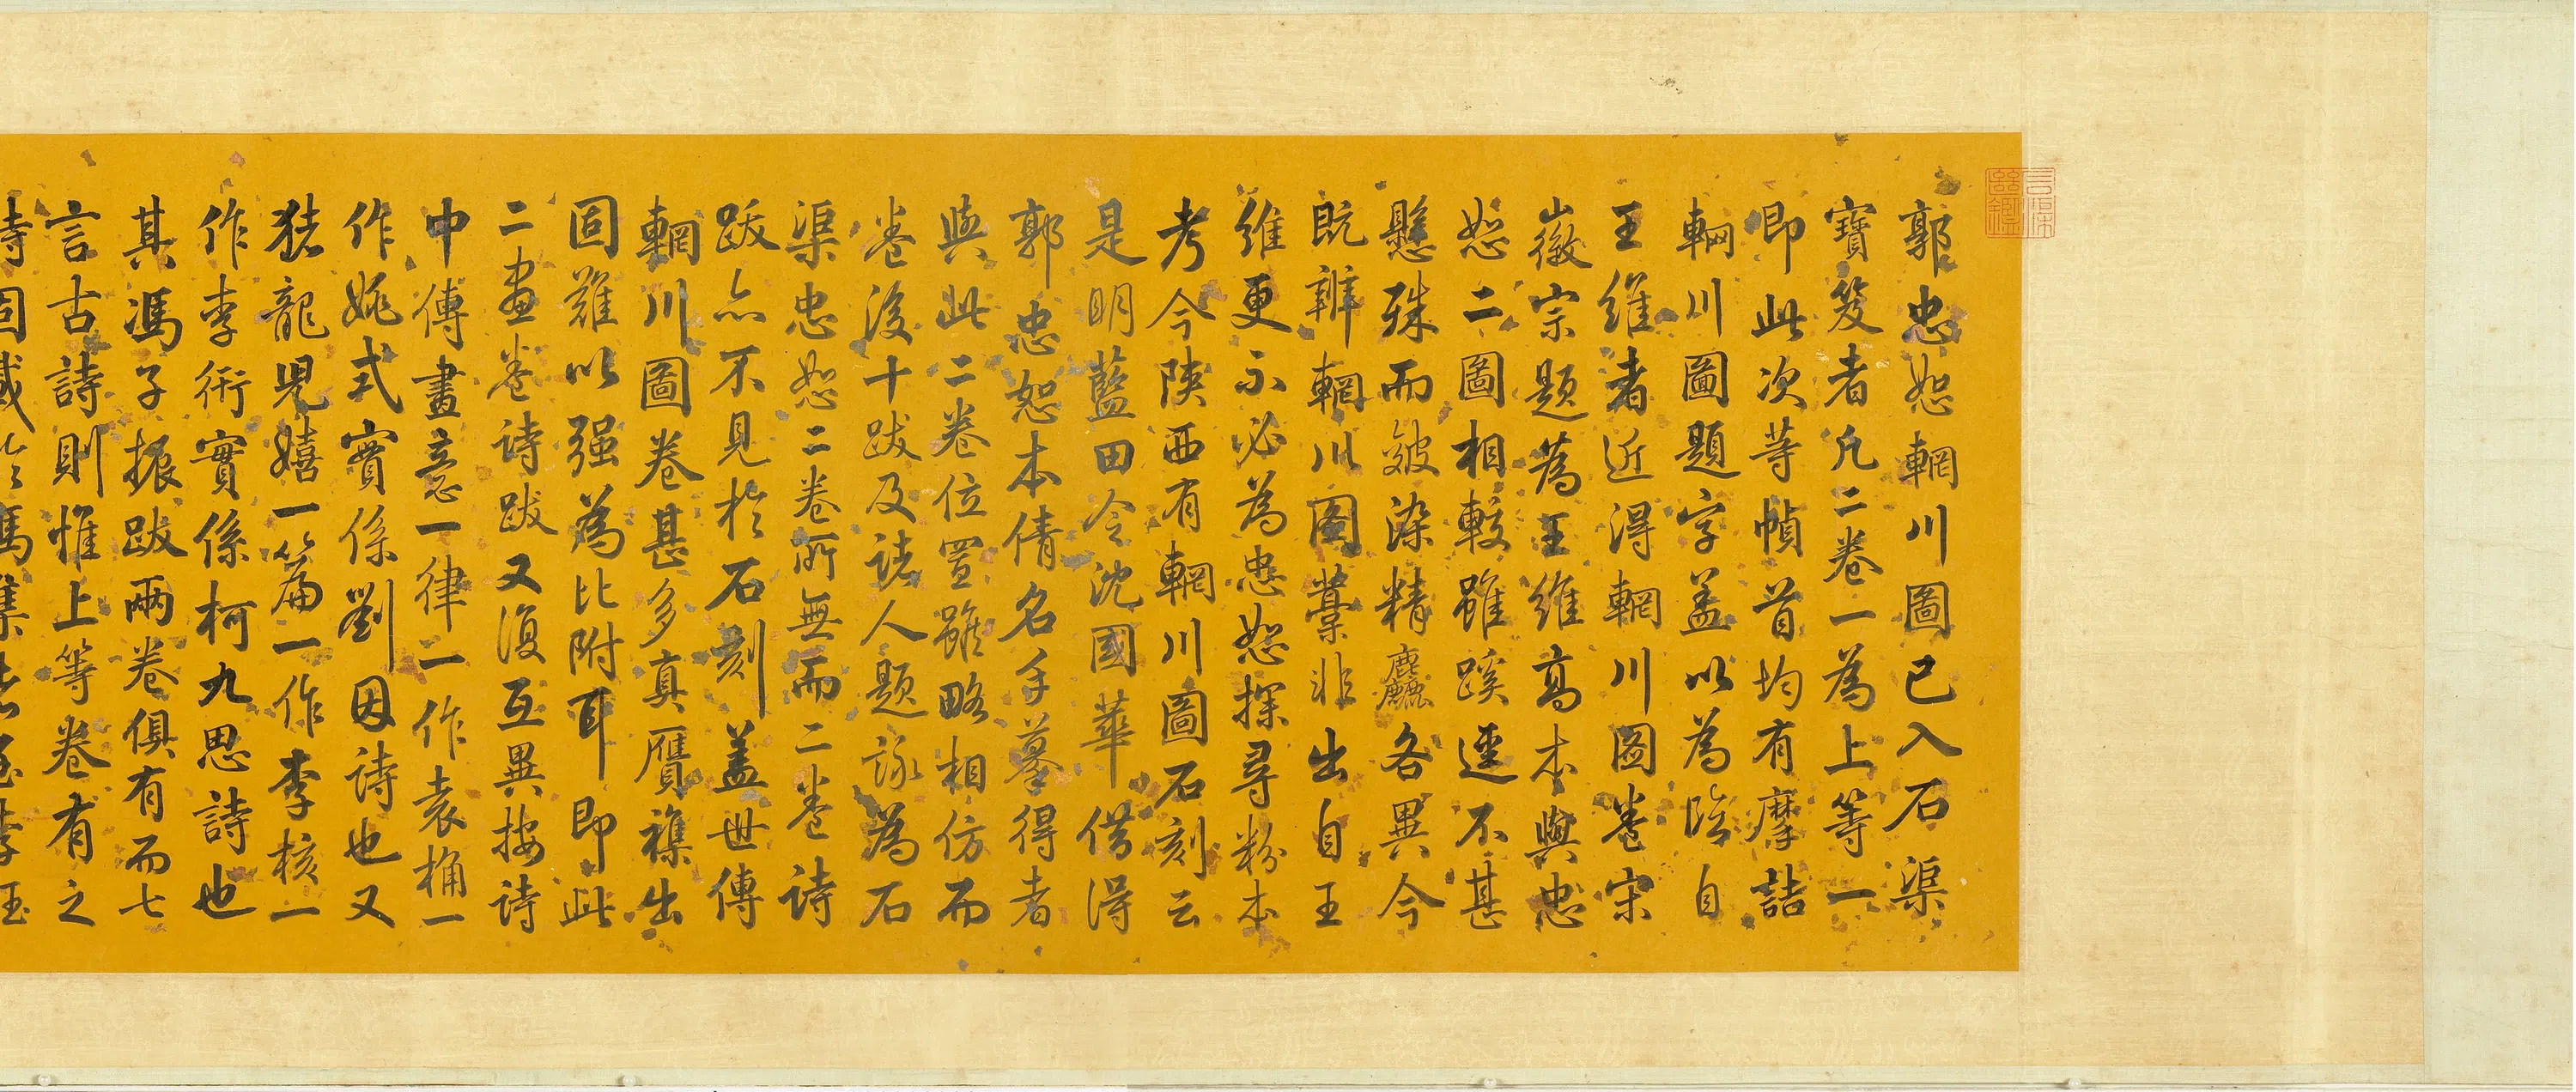 郭忠恕輞川圖已入石渠
寶笈者凡二卷一為上等一
即此次等幀首均有摩詰
輞川圖題字盖以為臨自
王維者近得輞川圖卷宋
徽宗題為王維高本與忠
恕二圖相較雖蹊逕不甚
懸殊而皴染精麤各異今
既辨輞川圖藁非出自王
維更不必為忠恕探尋粉本
考今陝西有輞川圖石刻云
是明藍田令沈國華借得
郭忠恕本倩名手摹得者
與此二卷位置雖略相仿而
卷後十跋及諸人題詠為石
渠忠恕二卷所無而二卷詩
跋亦不見於石刻盖世傳
輞川圖卷甚多真贋襍出
固難以强為比附耳即此
二畫卷诗跋又復互異按诗
中傳畫意一律一作袁桷一
作姚式實係劉因詩也又
猪龍児嬉一篇一作李核一
作李衎實係柯九思詩也
其馮子振跋兩卷俱有而七
言古詩則惟上等卷有之